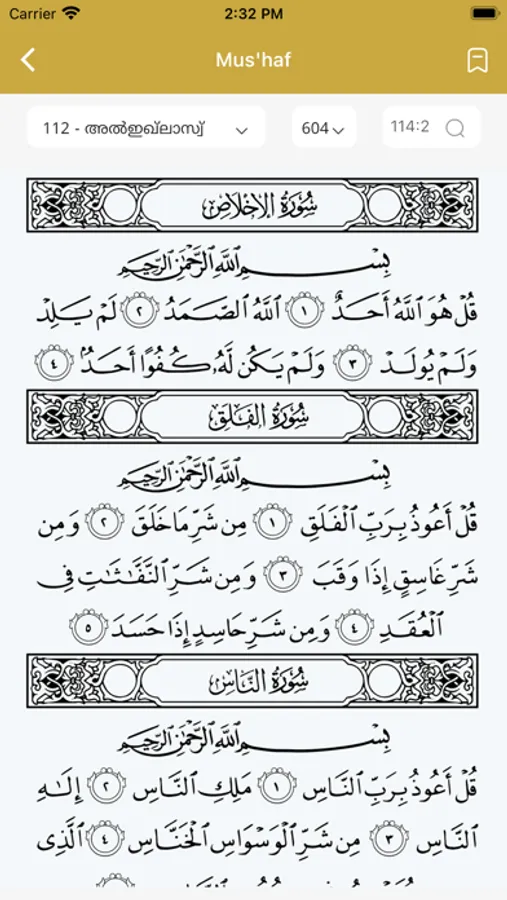 Carrier 2:32 PM
Mus'haf
112 - അൽഇഖ്ലാസ്വ് 604 114:2
سُورَةُ الإِخْلَاصِ
بِسْمِ ٱللَّهِ ٱلرَّحْمَٰنِ ٱلرَّحِيمِ
قُلْ هُوَ ٱللَّهُ أَحَدٌ ١ ٱللَّهُ ٱلصَّمَدُ ٢ لَمْ يَلِدْ
وَلَمْ يُولَدْ ٣ وَلَمْ يَكُن لَّهُۥ كُفُوًا أَحَدٌۢ ٤
سُورَةُ الفَلَقِ
بِسْمِ ٱللَّهِ ٱلرَّحْمَٰنِ ٱلرَّحِيمِ
قُلْ أَعُوذُ بِرَبِّ ٱلْفَلَقِ ١ مِن شَرِّ مَا خَلَقَ ٢ وَمِن
شَرِّ غَاسِقٍ إِذَا وَقَبَ ٣ وَمِن شَرِّ ٱلنَّفَّٰثَٰتِ فِى
ٱلْعُقَدِ ٤ وَمِن شَرِّ حَاسِدٍ إِذَا حَسَدَ ٥
سُورَةُ النَّاسِ
بِسْمِ ٱللَّهِ ٱلرَّحْمَٰنِ ٱلرَّحِيمِ
قُلْ أَعُوذُ بِرَبِّ ٱلنَّاسِ ١ مَلِكِ ٱلنَّاسِ ٢ إِلَٰهِ
ٱلنَّاسِ ٣ مِن شَرِّ ٱلْوَسْوَاسِ ٱلْخَنَّاسِ ٤ ٱلَّذِى